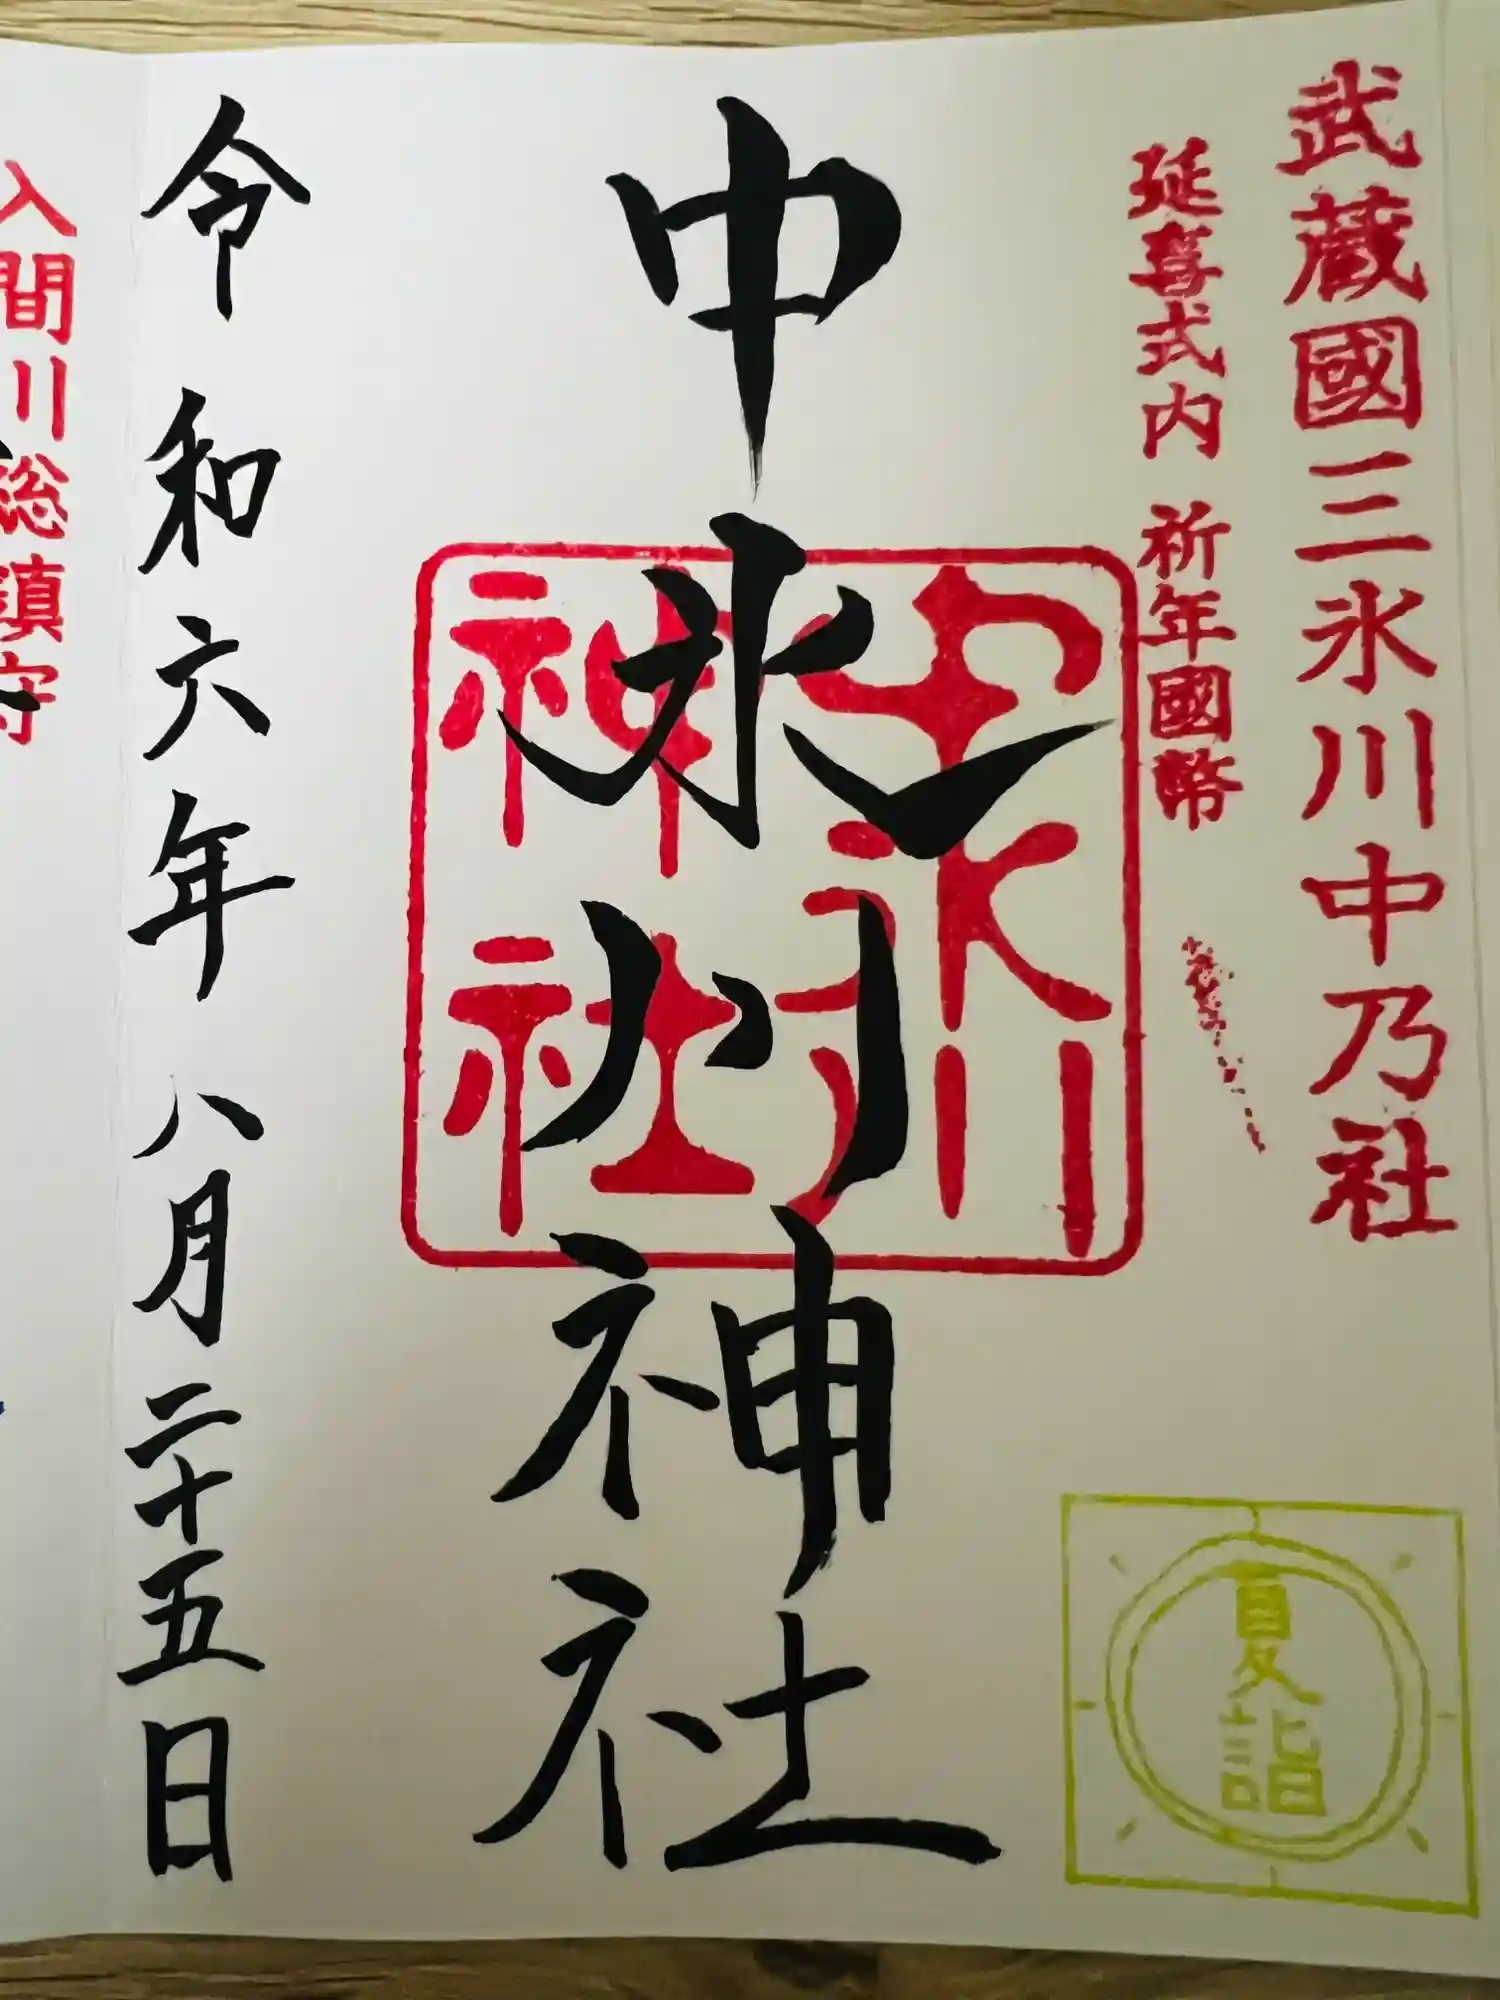 武蔵國三氷川中乃社
延喜式内 祈年國幣
中氷川神社
中氷川
神社
夏詣
令和六年八月二十五日
入間川総鎮守